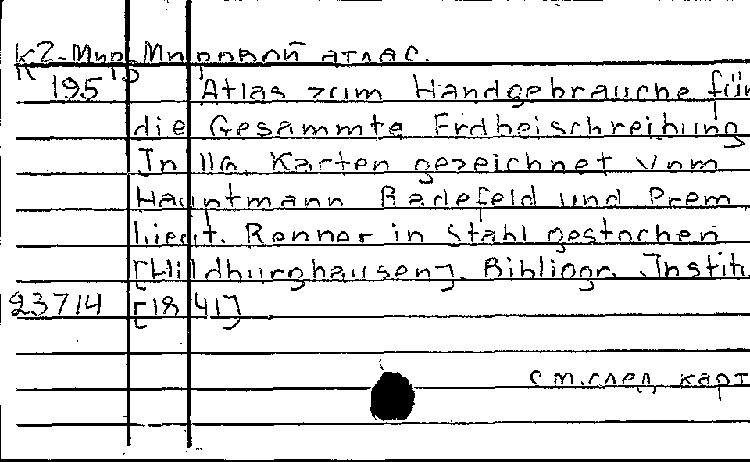 К2-Мир Мировой атлас.
К 195 Atlas zum Handgebrauche für
die Gesammte Erdbeischreibung
In 116 Karten gezeichnet vom
Hauptmann Radefeld und Prem
lieut. Renner in Stahl gestochen
[Hildburghausen]. Bibliogr. Instit.
23714 [1841]
См. след. карт